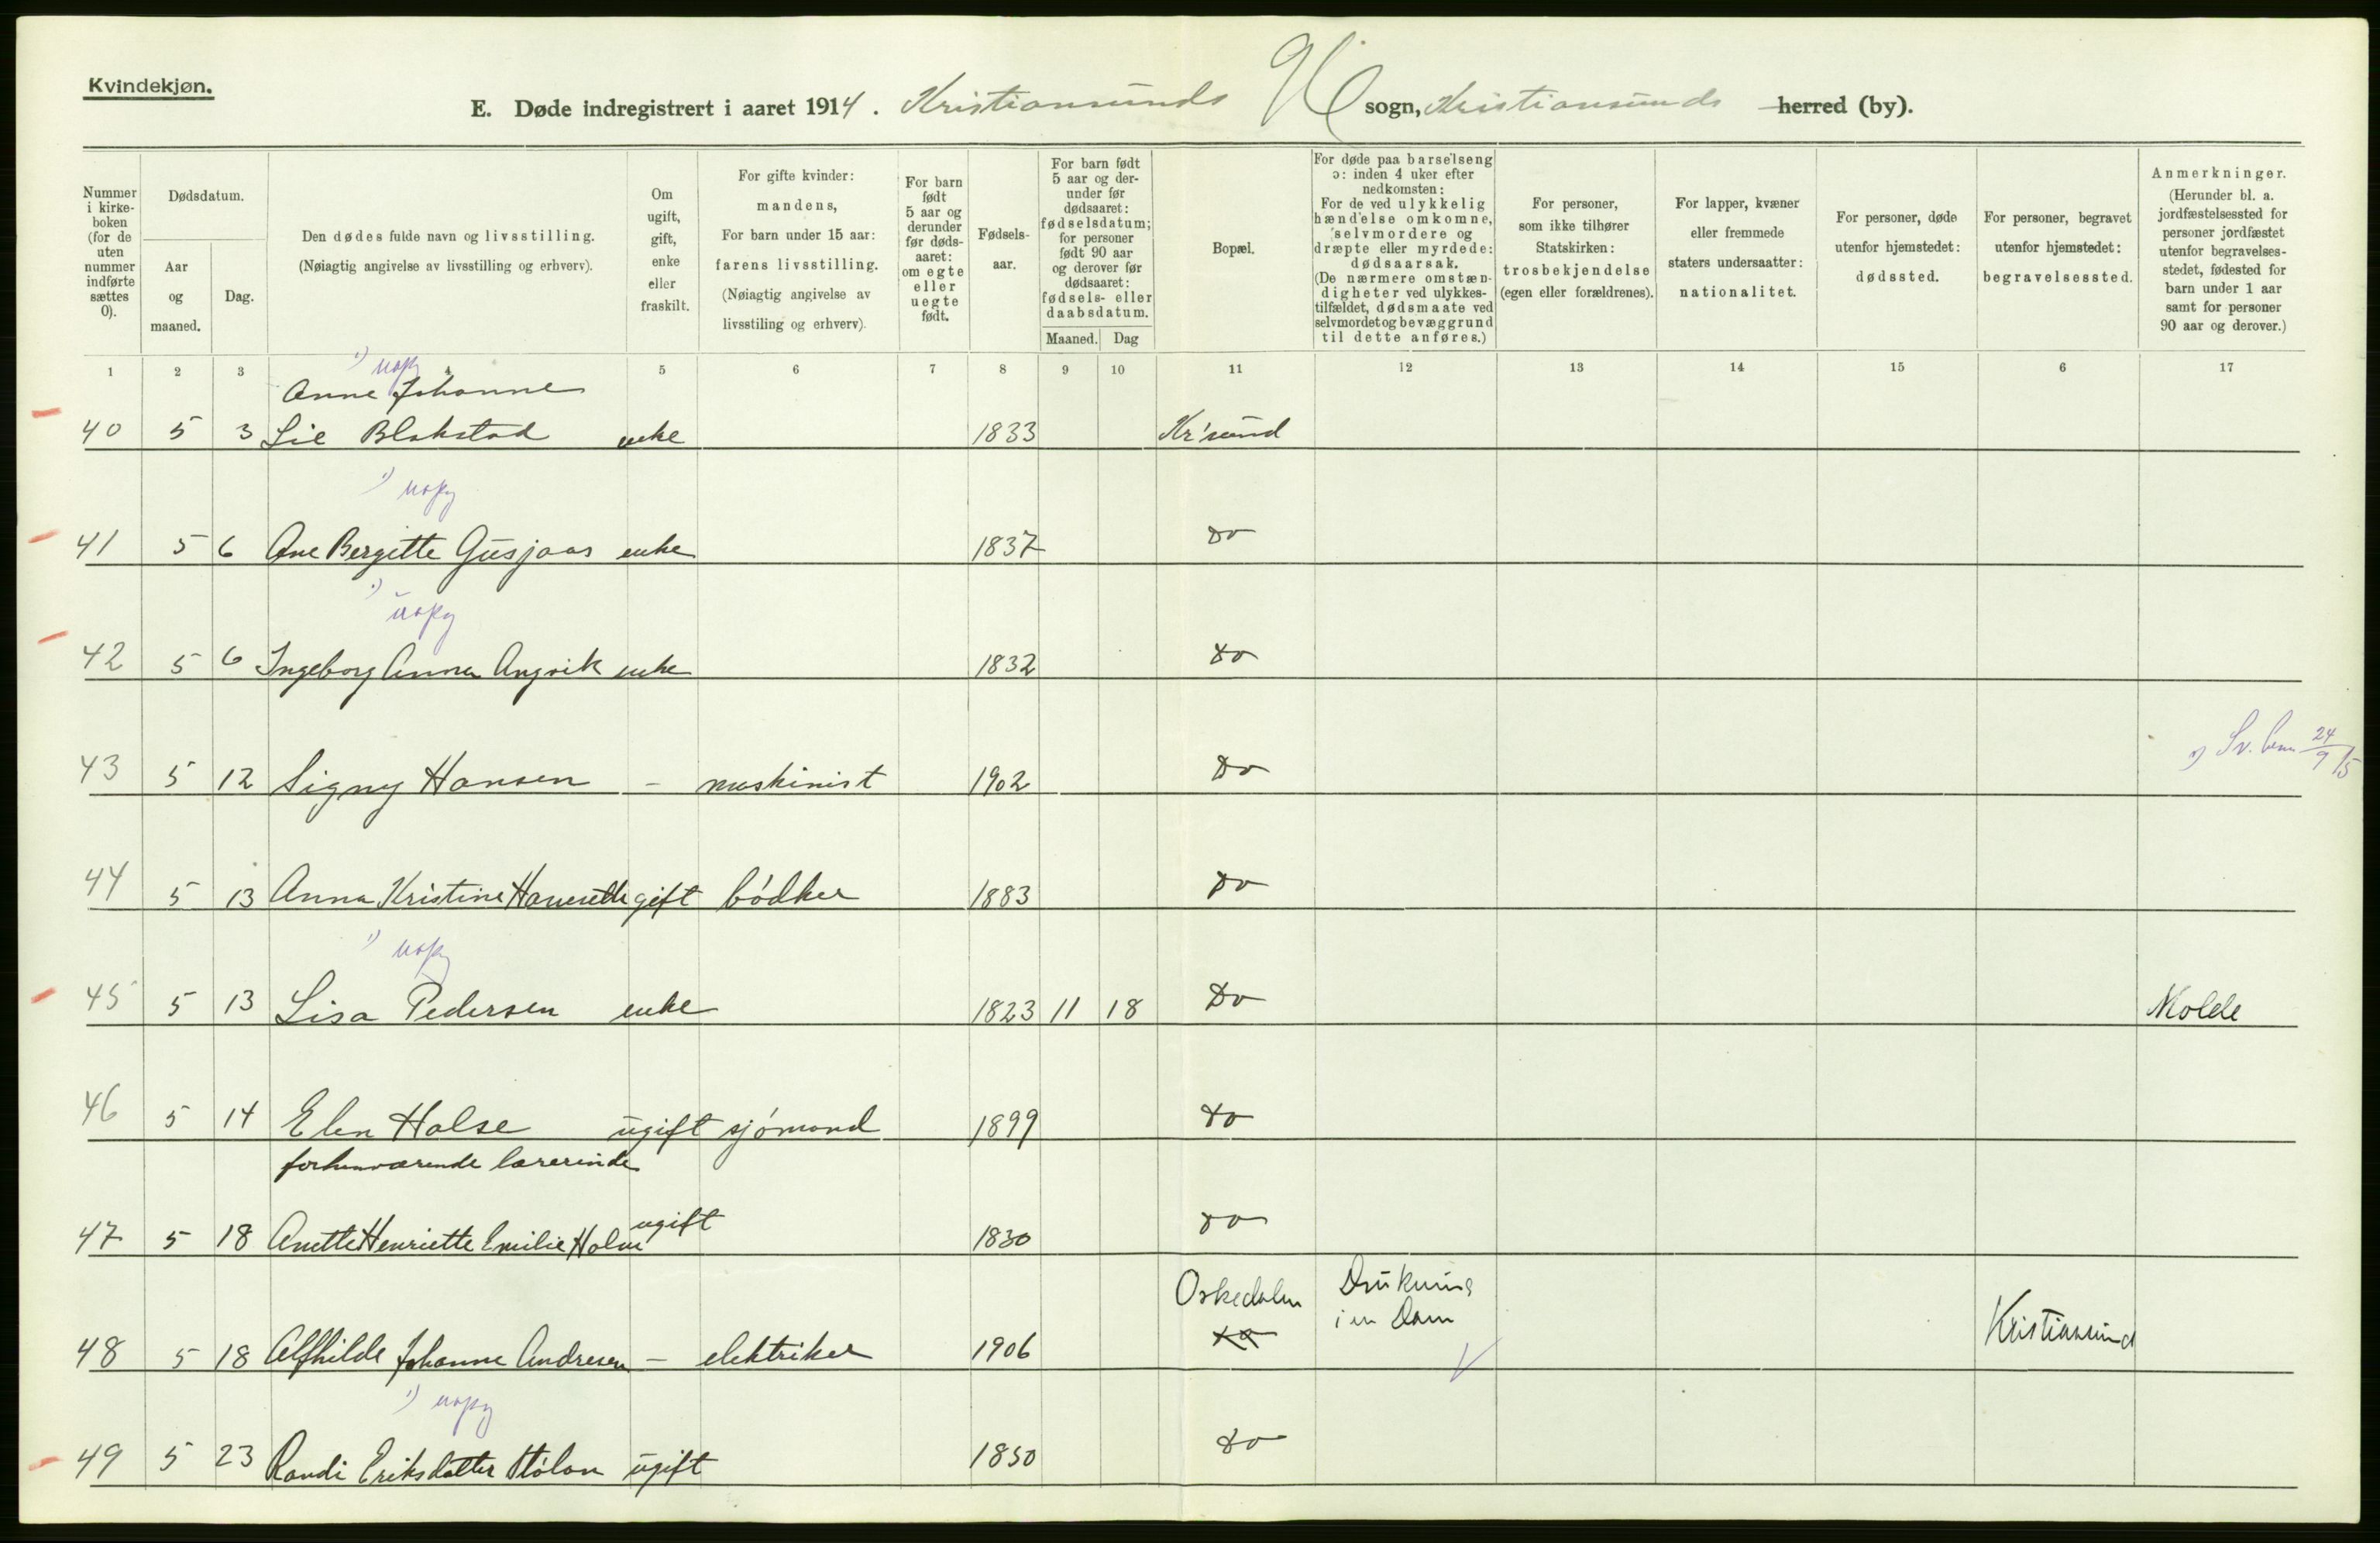 Kvindekjøn.
E. Døde indregistrert i aaret 1914. Kristiansunds sogn, Kristiansunds herred (by).
Nummer i kirkeboken (for de uten nummer indførte sættes 0).
Dødsdatum.
Aar og maaned.
Dag.
Den dødes fulde navn og livsstilling.
(Nøiagtig angivelse av livsstilling og erhverv).
Om ugift, gift, enke eller fraskilt.
For gifte kvinder: mandens,
For barn under 15 aar: farens livsstilling.
(Nøiagtig angivelse av livsstiling og erhverv).
For barn født 5 aar og derunder før dødsaaret: om egte eller uegte født.
Fødselsaar.
For barn født 5 aar og derunder før dødsaaret: fødselsdatum; for personer født 90 aar og derover før dødsaaret: fødsels- eller daabsdatum.
Maaned. Dag
Bopæl.
For døde paa barselseng ɔ: inden 4 uker efter nedkomsten: For de ved ulykkelig hændelse omkomne, selvmordere og dræpte eller myrdede: dødsaarsak. (De nærmere omstændigheter ved ulykkestilfældet, dødsmaate ved selvmordet og bevæggrund til dette anføres.)
For personer, som ikke tilhører Statskirken: trosbekjendelse (egen eller forældrenes).
For lapper, kvæner eller fremmede staters undersaatter: nationalitet.
For personer, døde utenfor hjemstedet: dødssted.
For personer, begravet utenfor hjemstedet: begravelsessted.
Anmerkninger. (Herunder bl. a. jordfæstelsessted for personer jordfæstet utenfor begravelsesstedet, fødested for barn under 1 aar samt for personer 90 aar og derover.)
1 2 3 4 5 6 7 8 9 10 11 12 13 14 15 6 17
1) uopg
Anne Johanne
40 5 3 Lie Blakstad enke 1833 Kr'sund
1) uopg
41 5 6 Ane Bergitte Gusjaas enke 1837 Do
1) uopg
42 5 6 Ingeborg Anna Angvik enke 1832 Do
43 5 12 Signy Hansen - maskinist 1902 Do 1) Sv. 24/9 15
44 5 13 Anna Kristine gift bødker 1883 Do
1) uopg
45 5 13 Lisa Pedersen enke 1823 11 18 Do Molde
46 5 14 Elen Halse ugift sjømand 1899 Do
forhenværende lærerinde
47 5 18 Anette Henriette Emilie Holm ugift 1830 Do
Drukning
i en Dam
48 5 18 Alfhilde Johanne Andresen - elektriker 1906 Do Kristiansund
1) uopg
49 5 23 Randi Eriksdatter Stølan ugift 1850 Do